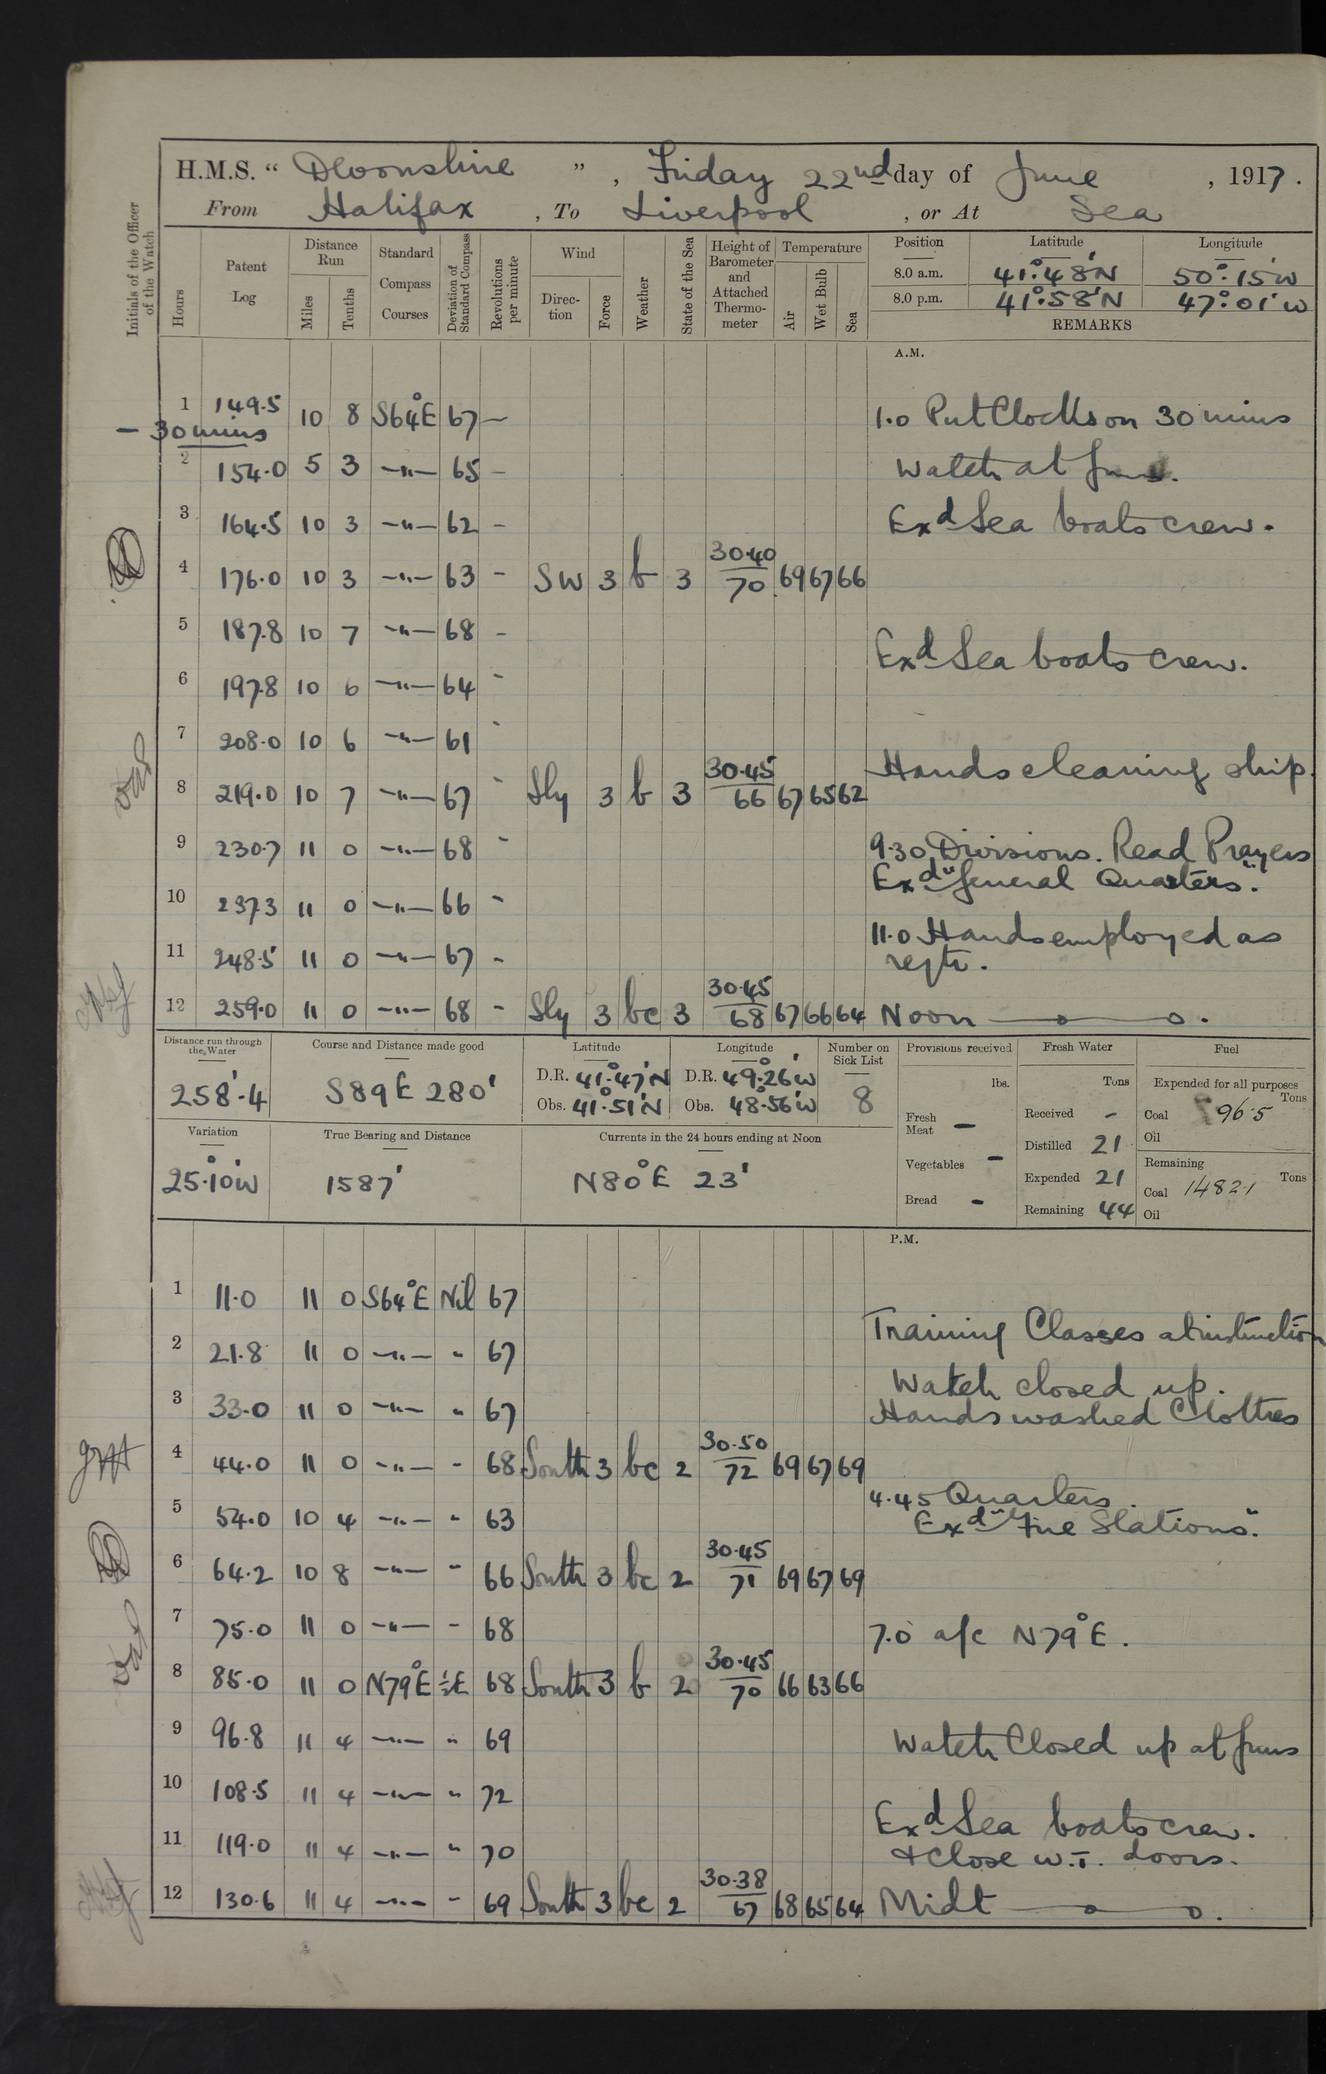 H.M.S. “ Devonshire ” , Friday 22nd day of June , 1917 .
From Halifax , To Liverpool , or At Sea
Initials of the Officer of the Watch
Hours
Patent Log
Distance Run
Miles
Tenths
Standard Compass Courses
Deviation of Standard Compass
Revolutions per minute
Wind
Direc-tion
Force
Weather
State of the Sea
Height of Barometer and Attached Thermo-meter
Temperature
Air
Wet Bulb
Sea
Position Latitude Longitude
8.0 a.m. 41°.48'N 50°.15'W
8.0 p.m. 41°.58'N 47°.01'W
REMARKS
A.M.
1 149.5 10 8 S64°E 67 — 1.0 Put Clocks on 30 mins
— 30 mins
2 154.0 5 3 —"— 65 - Watch at guns.
3 164.5 10 3 —"— 62 - Exd Sea boats crew.
4 176.0 10 3 —"— 63 - SW 3 b 3 30.40 70 69 67 66
5 187.8 10 7 —"— 68 -
Exd Sea boats crew.
6 197.8 10 6 —"— 64 -
7 208.0 10 6 —"— 61 -
Hands cleaning ship.
8 219.0 10 7 —"— 67 - Sly 3 b 3 30.45 66 67 65 62
9 230.7 11 0 —"— 68 - 9.30 Divisions. Read Prayers
Exd "General Quarters".
10 237.3 11 0 —"— 66 -
11.0 Hands employed as
11 248.5 11 0 —"— 67 - reqte.
12 259.0 11 0 —"— 68 - Sly 3 bc 3 30.45 68 67 66 64 Noon
Distance run through the Water
258'.4
Course and Distance made good
S89E 280'
Latitude
D.R. 41°.47'N
Obs. 41°.51'N
Longitude
D.R. 49°.26'W
Obs. 48.56'W
Number on Sick List
8
Variation
25°.10'W
True Bearing and Distance
1587'
Currents in the 24 hours ending at Noon
N80°E 23'
Provisions received
lbs.
Fresh Meat —
Vegetables —
Bread -
Fresh Water
Tons
Received -
Distilled 21
Expended 21
Remaining 44
Fuel
Expended for all purposes
Tons
Coal 96.5
Oil
Remaining
Tons
Coal 1482.1
Oil
P.M.
1 11.0 11 0 S64°E Nil 67
Training Classes at instruction
2 21.8 11 0 —"— " 67
Watch closed up.
3 33.0 11 0 —"— " 67 Hands washed Clothes
4 44.0 11 0 —"— - 68 South 3 bc 2 30.50 72 69 67 69
4.45 Quarters.
5 54.0 10 4 —"— " 63 Exd "Fire Stations".
6 64.2 10 8 —"— " 66 South 3 bc 2 30.45 71 69 67 69
7 75.0 11 0 —"— - 68 7.0 a/c N79°E.
8 85.0 11 0 N79°E ½E 68 South 3 b 2 30.45 70 66 63 66
9 96.8 11 4 —"— " 69 Watch Closed up at guns
10 108.5 11 4 —"— " 72
Exd Sea boats crew.
11 119.0 11 4 —"— " 70 & Close W.T. doors.
12 130.6 11 4 —"— - 69 South 3 bc 2 30.38 67 68 65 64 Midt